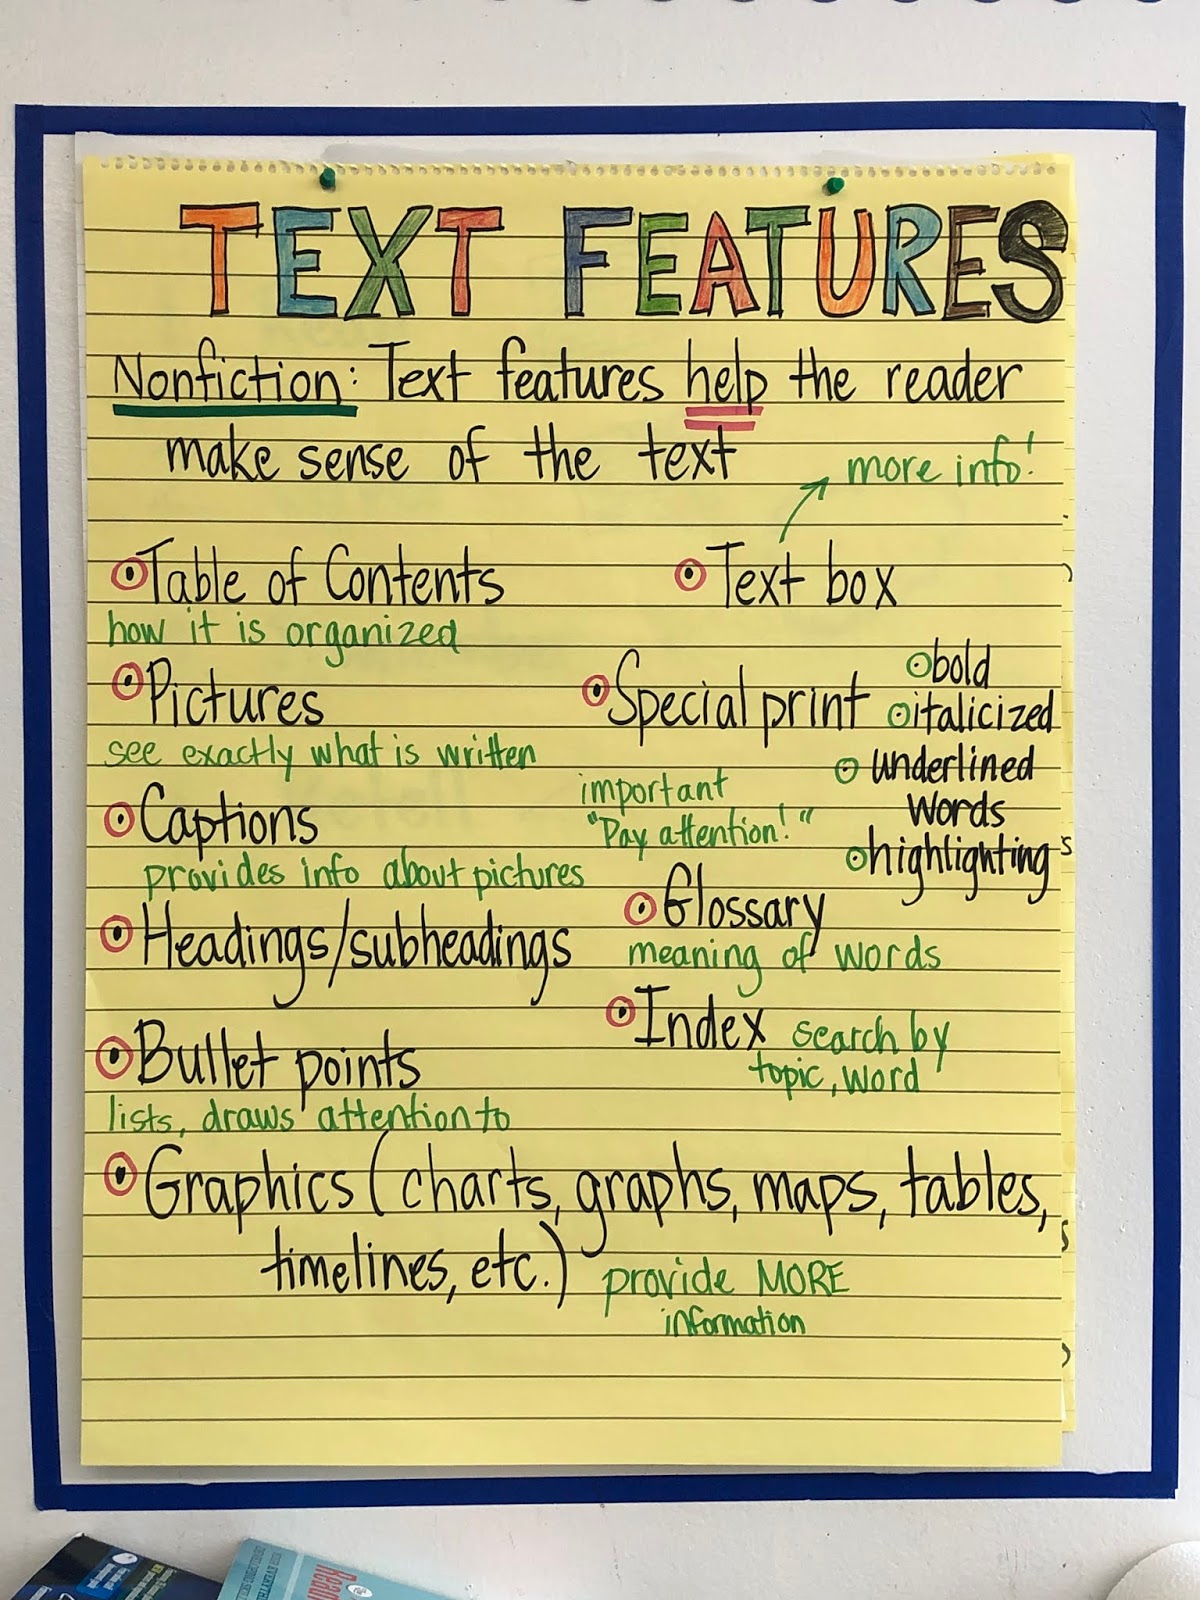 TEXT FEATURES
Nonfiction: Text features help the reader
make sense of the text
more info!
Table of Contents
how it is organized
Pictures
see exactly what is written
Captions
provides info about pictures
Headings/subheadings
Bullet points
lists, draws attention to
Text box
Special print
bold
italicized
underlined
words
highlighting
important
"Pay attention!"
Glossary
meaning of words
Index search by
topic, word
Graphics (charts, graphs, maps, tables,
timelines, etc.)
provide MORE
information